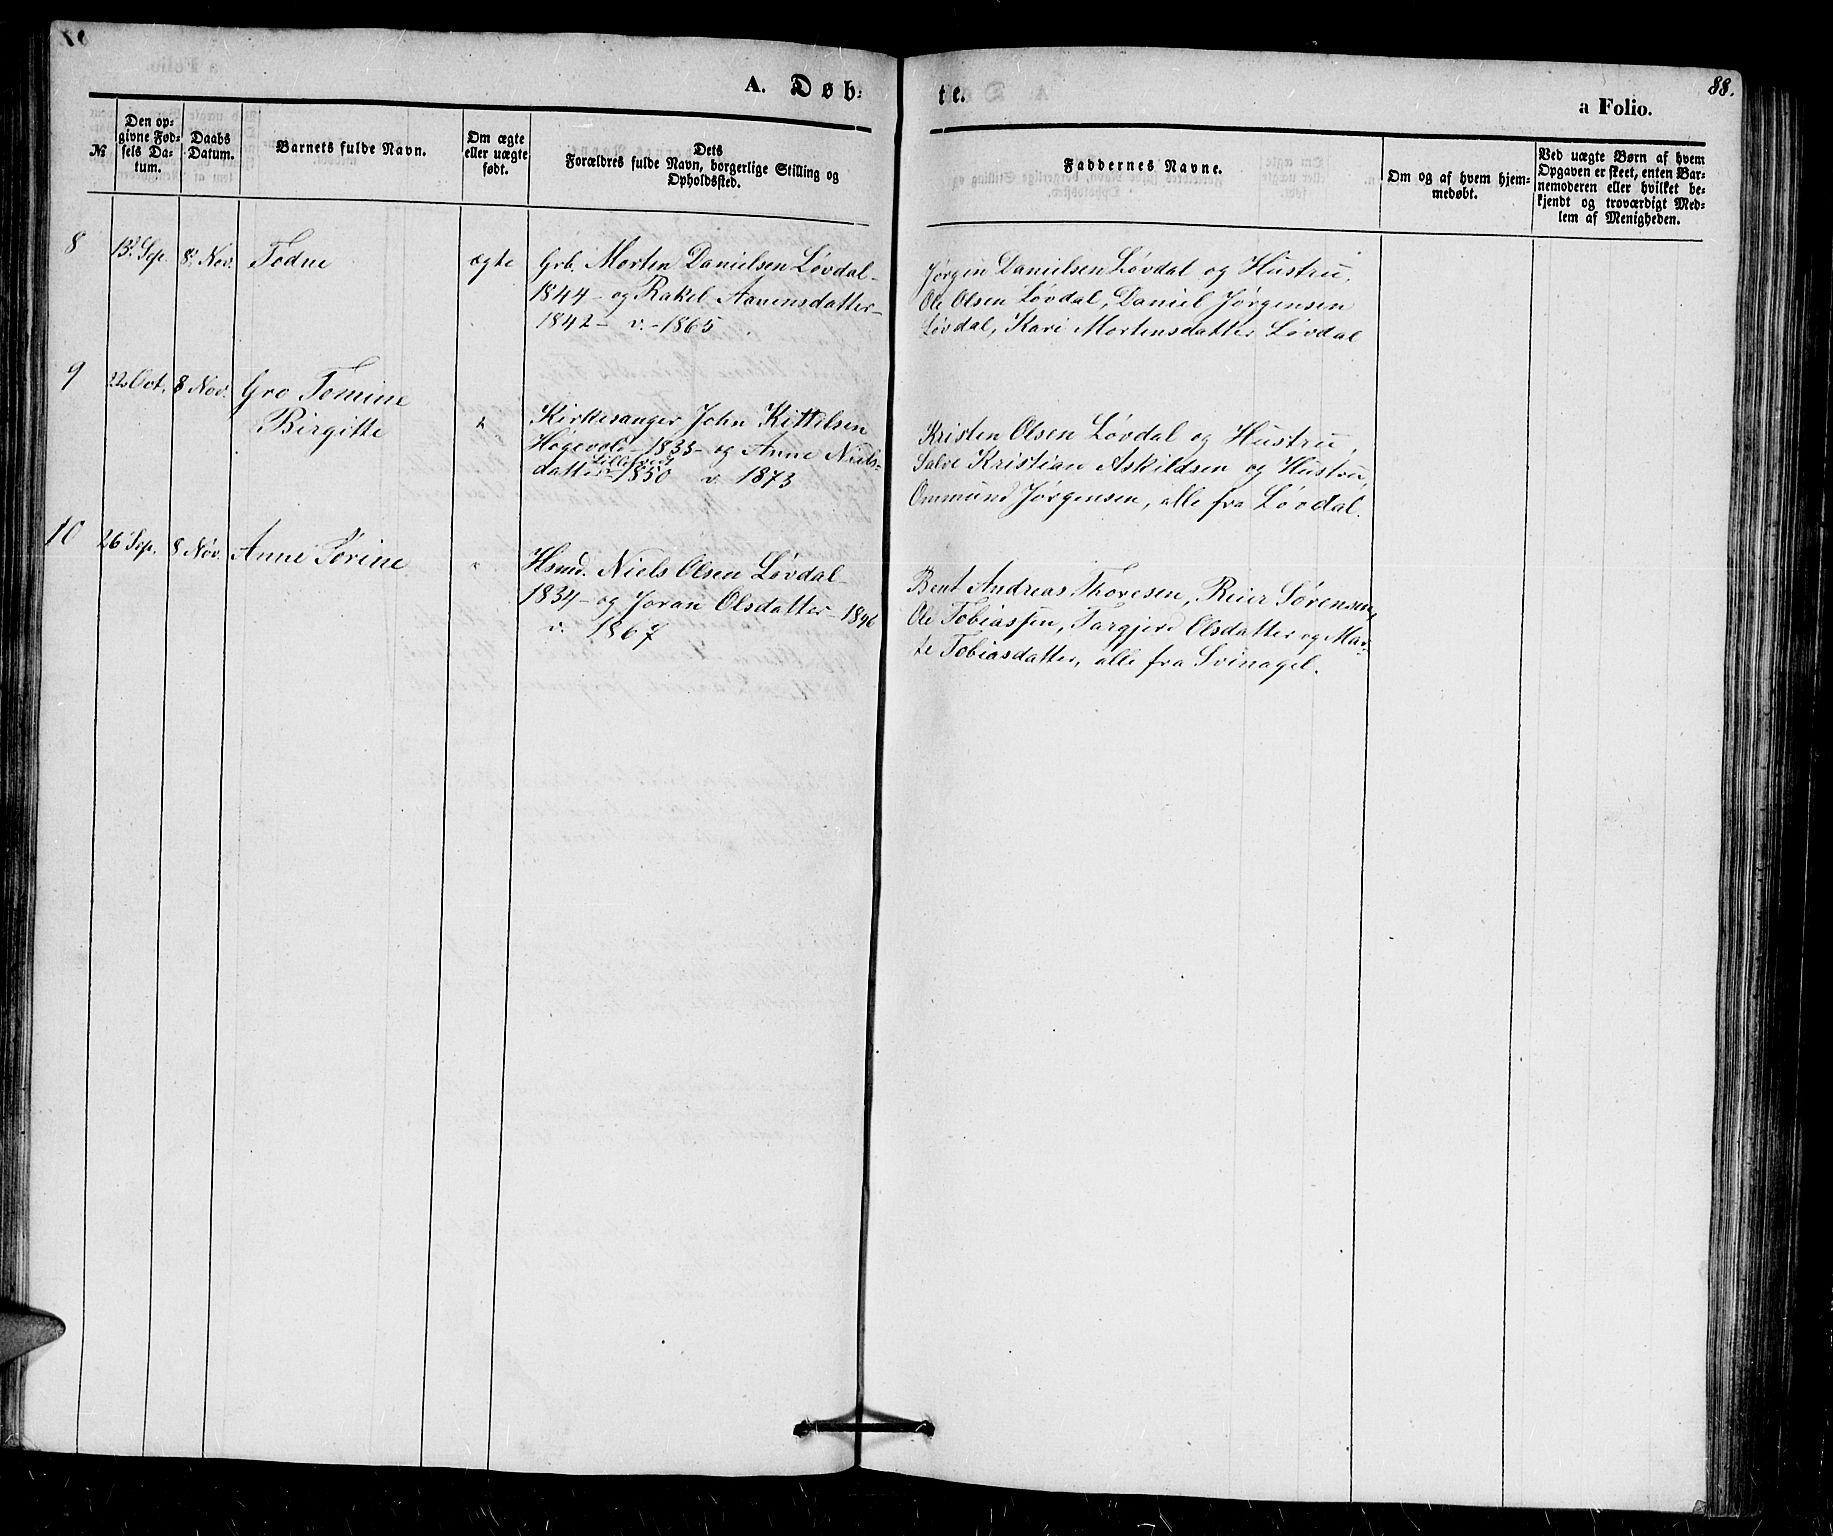 A. Døb-
te.
88.
a Folio.
№
Den op-
givne Fød-
sels Da-
tum.
Daabs
Datum.
Barnets fulde Navn.
Om ægte
eller uægte
født.
Dets
Forældres fulde Navn, borgerlige Stilling og
Opholdssted.
Faddernes Navne.
Om og af hvem hjem-
medøbt.
Ved uægte Børn af hvem
Opgaven er skeet, enten Bar-
nemoderen eller hvilket be-
kjendt og troværdigt Med-
lem af Menigheden.
8
13 Sep.
8 Nov.
Todne
ægte
Grb. Morten Danielsen Løvdal
1844 - og Rakel Aanensdatter -
1842 - v. - 1865
Jørgen Danielsen Løvdal og Hustru,
Ole Olsen Løvdal, Daniel Jørgensen
Løvdal, Kari Mortensdatter Løvdal
9
22 Oct.
8 Nov.
Gro Tomine
Birgitte
Kirkesanger John Kittelsen
Høgevold - 1833 - og Anne Niels-
datter 1850 v. 1873
Kristen Olsen Løvdal og Hustru,
Salve Kristian Askildsen og Hustru,
Ommund Jørgensen, alle fra Løvdal.
10
26 Sep.
8 Nov.
Anne Torine
"
Hsmd. Niels Olsen Løvdal -
1834 - og Joran Olsdatter - 1846
v. 1867
Bent Andreas Thoresen, Reier Sørensen,
Ole Tobiassen, Targjerd Olsdatter og Mar-
te Tobiasdatter, alle fra Svinagel.